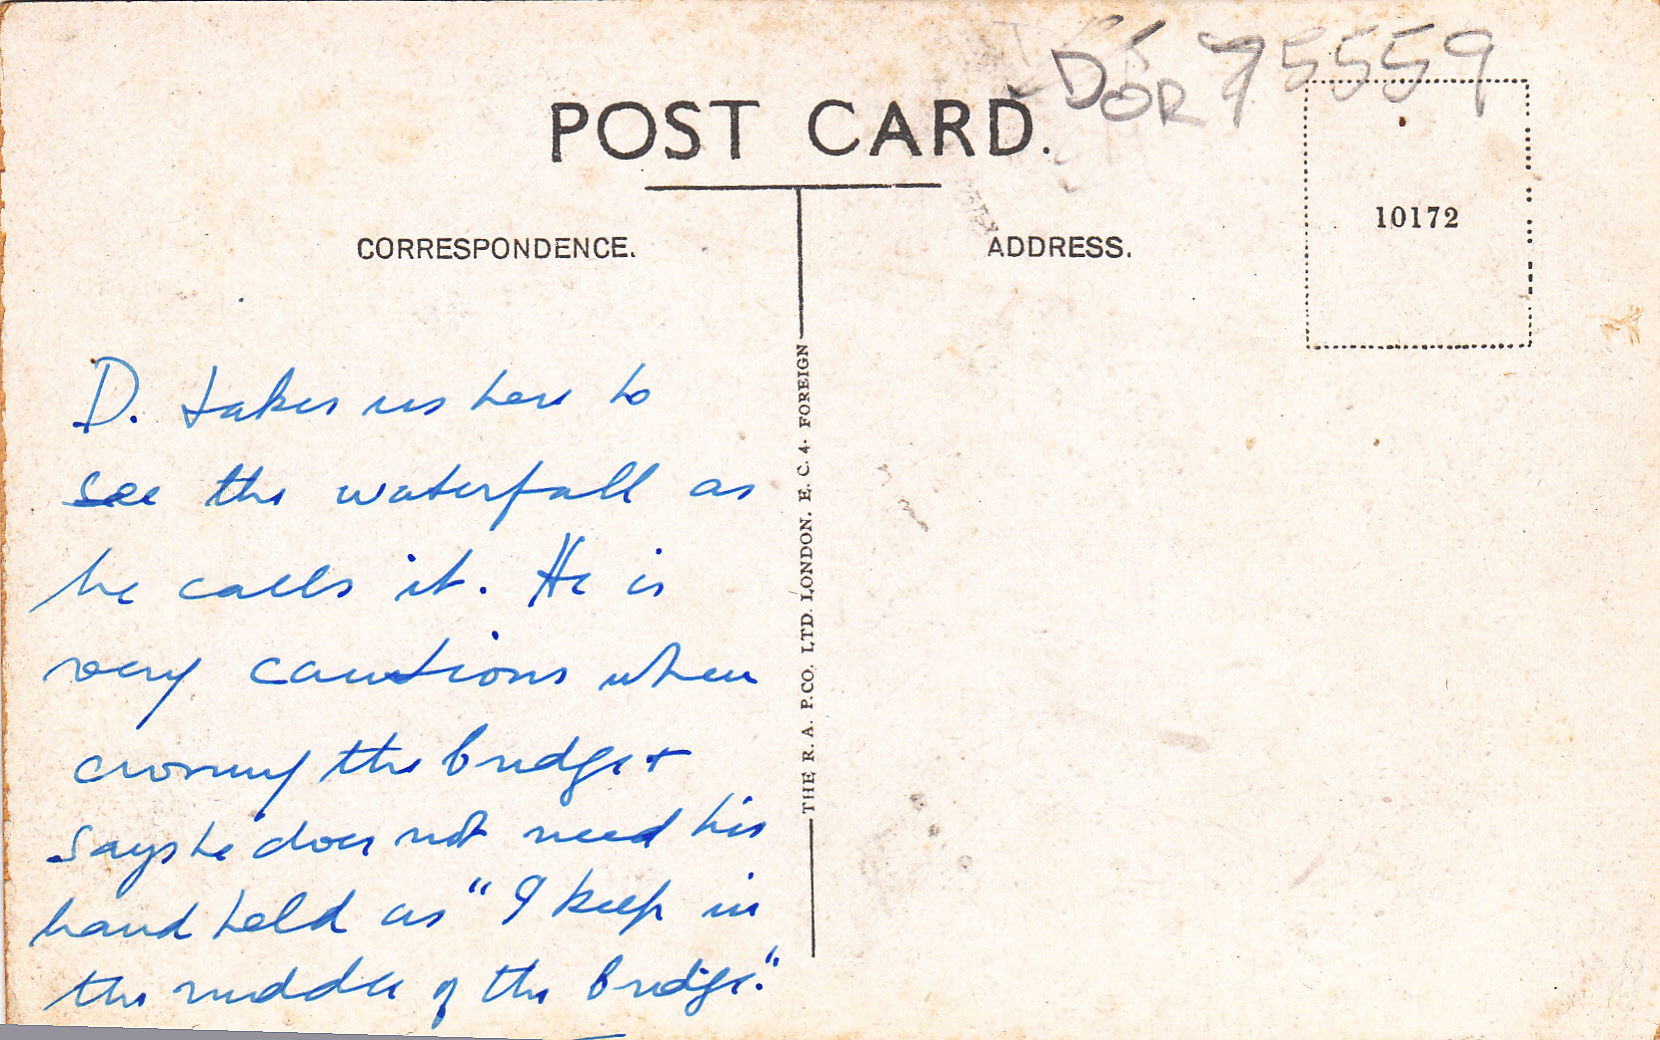 DOR 75559
POST CARD.
10172
CORRESPONDENCE.
ADDRESS.
THE R. A. P. CO. LTD. LONDON. E. C. 4. FOREIGN
D. takes us here to
see the waterfall as
he calls it. He is
very cautious when
crossing the bridge +
says he does not need his
hand held as "I keep in
the middle of the bridge."